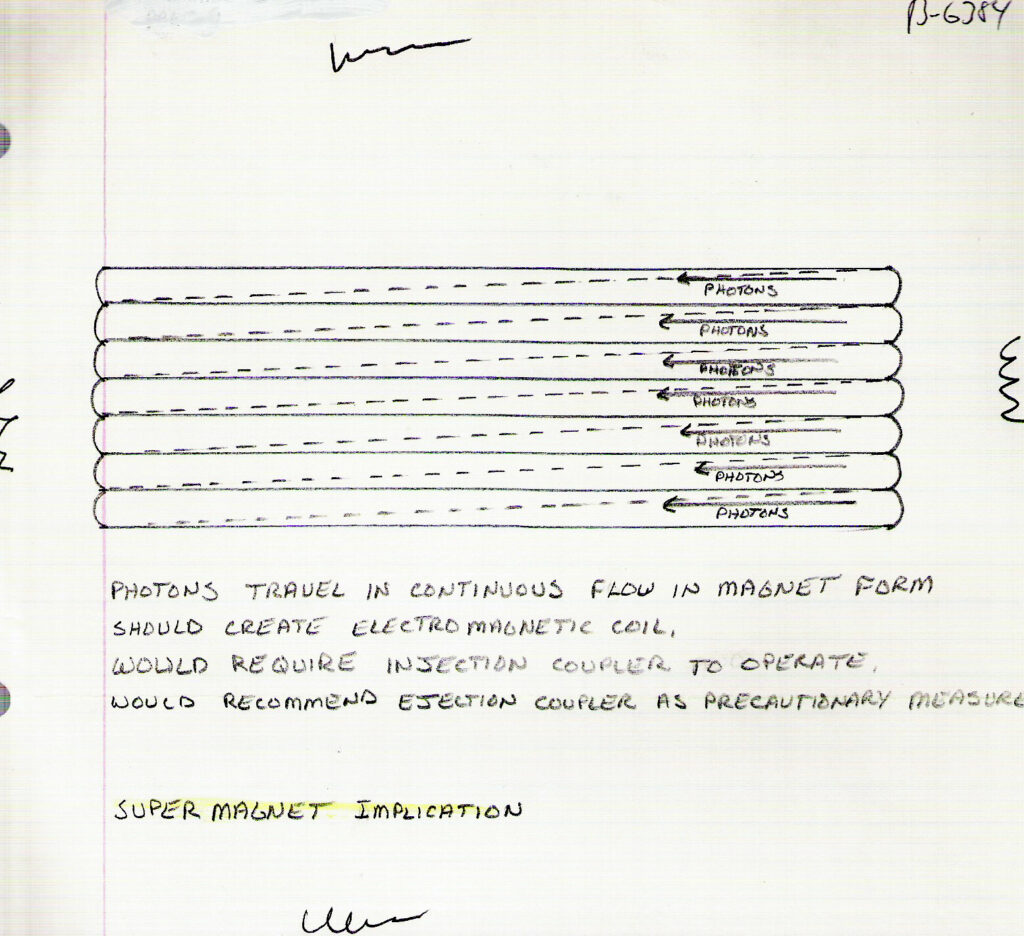 PHOTONS
PHOTONS
PHOTONS
PHOTONS
PHOTONS
PHOTONS
PHOTONS
PHOTONS TRAVEL IN CONTINUOUS FLOW IN MAGNET FORM
SHOULD CREATE ELECTROMAGNETIC COIL,
WOULD REQUIRE INJECTION COUPLER TO OPERATE.
WOULD RECOMMEND EJECTION COUPLER AS PRECAUTIONARY MEASURE
SUPER MAGNET IMPLICATION